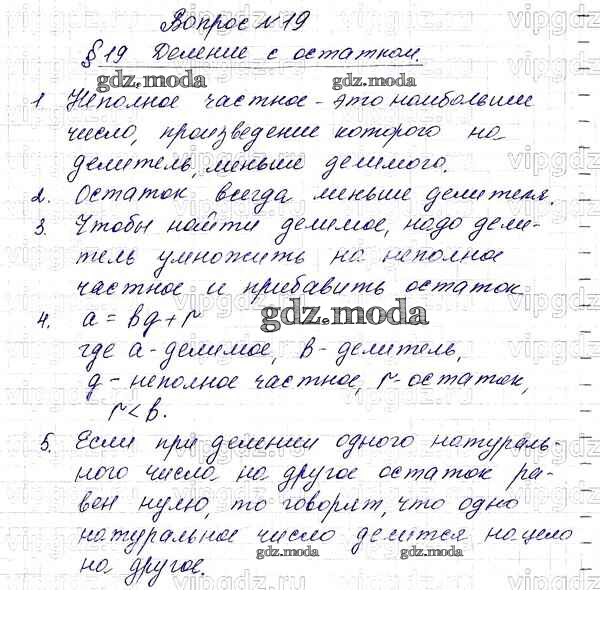 Вопрос №19
§ 19 Деление с остатком.
gdz.moda gdz.moda
1. Неполное частное - это наибольшее
число, произведение которого на
делитель, меньше делимого.
2. Остаток всегда меньше делителя.
3. Чтобы найти делимое, надо дели-
тель умножить на неполное
частное и прибавить остаток
4. a = bq + r gdz.moda
где a - делимое, b - делитель,
q - неполное частное, r - остаток,
r < b.
5. Если при делении одного натураль-
ного числа на другое остаток ра-
вен нулю, то говорят, что одно
натуральное число делится нацело
gdz.moda gdz.moda
на другое.